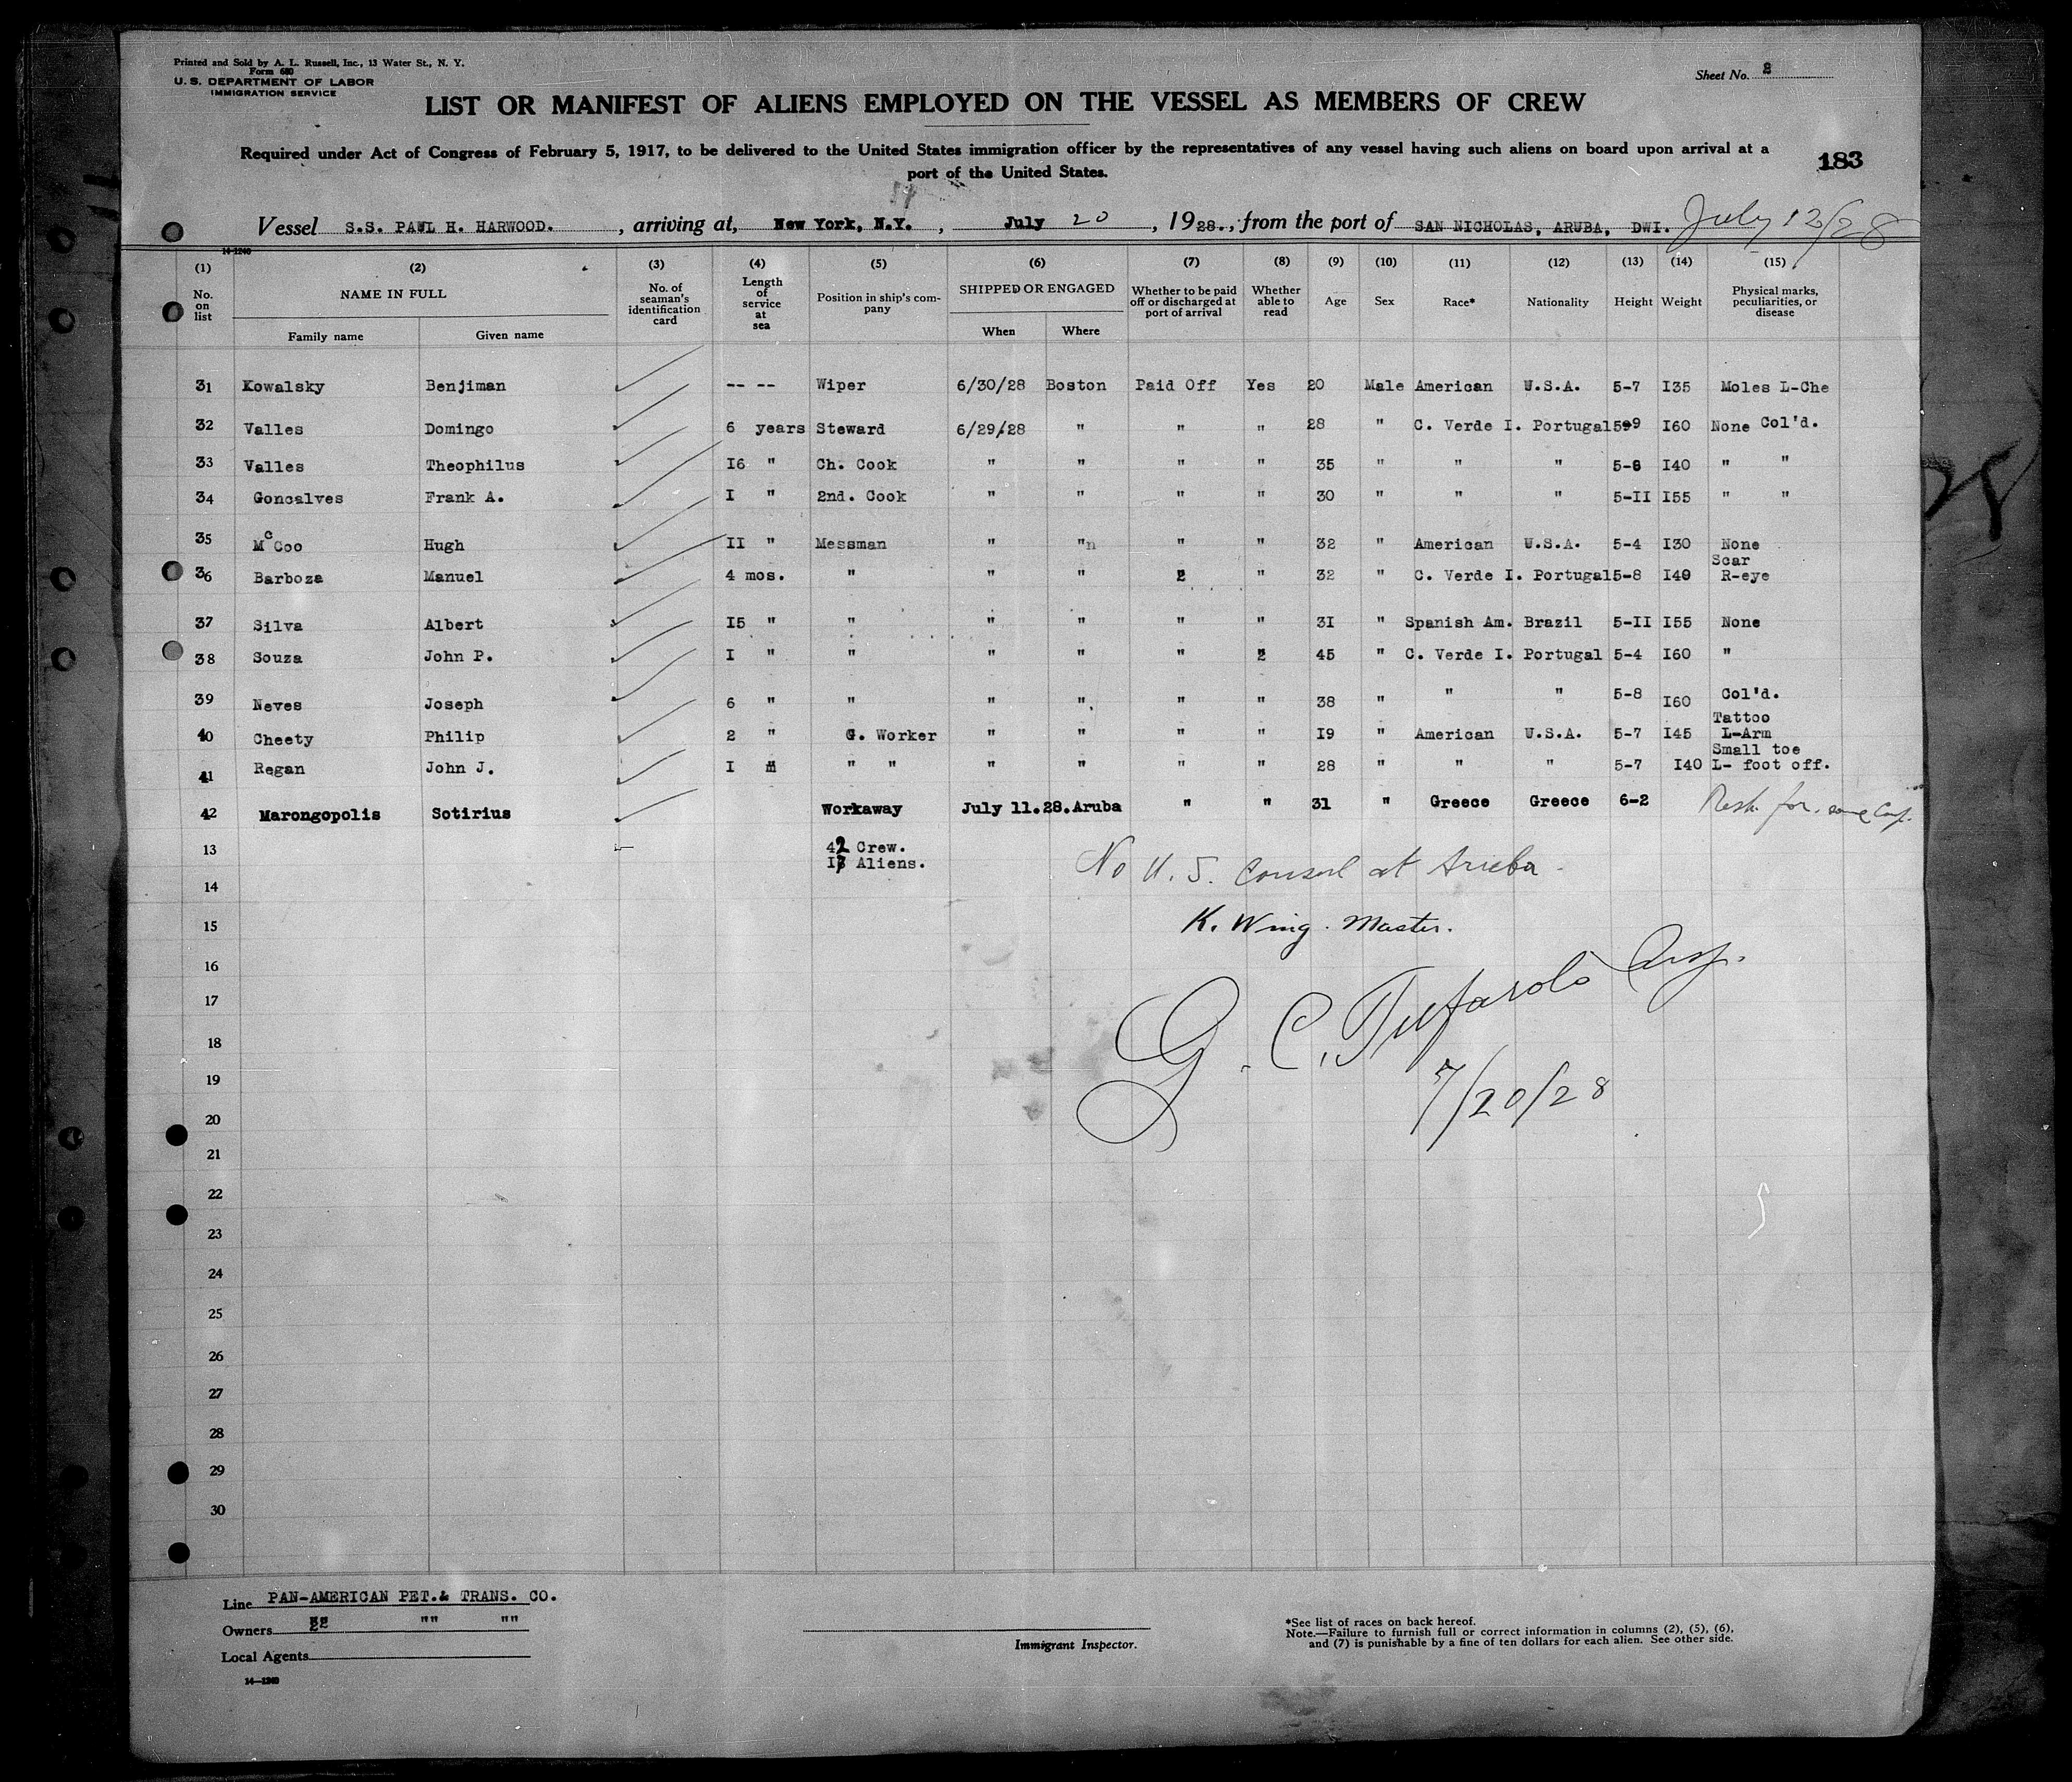 Printed and Sold by A. L. Russell, Inc., 13 Water St., N. Y.
Form 680
U. S. DEPARTMENT OF LABOR
IMMIGRATION SERVICE
Sheet No. 2
LIST OR MANIFEST OF ALIENS EMPLOYED ON THE VESSEL AS MEMBERS OF CREW
Required under Act of Congress of February 5, 1917, to be delivered to the United States immigration officer by the representatives of any vessel having such aliens on board upon arrival at a
port of the United States.
183
Vessel S.S. PAUL H. HARWOOD. , arriving at, New York, N.Y. , July 20 , 1928., from the port of SAN NICHOLAS, ARUBA, DWI. July 13/28
14-1240
(1) (2) (3) (4) (5) (6) (7) (8) (9) (10) (11) (12) (13) (14) (15)
No. on list NAME IN FULL No. of seaman's identification card Length of service at sea Position in ship's company SHIPPED OR ENGAGED Whether to be paid off or discharged at port of arrival Whether able to read Age Sex Race* Nationality Height Weight Physical marks, peculiarities, or disease
Family name Given name When Where
31 Kowalsky Benjiman -- -- Wiper 6/30/28 Boston Paid Off Yes 20 Male American U.S.A. 5-7 I35 Moles L-Che
32 Valles Domingo 6 years Steward 6/29/28 " " " 28 " C. Verde I. Portugal 5-9 I60 None Col'd.
33 Valles Theophilus I6 " Ch. Cook " " " " 35 " " " 5-8 I40 " "
34 Goncalves Frank A. I " 2nd. Cook " " " " 30 " " " 5-II I55 " "
35 McCoo Hugh II " Messman " "n " " 32 " American U.S.A. 5-4 I30 None
36 Barboza Manuel 4 mos. " " " 2 " 32 " C. Verde I. Portugal 5-8 I40 Scar R-eye
37 Silva Albert I5 " " " " " " 3I " Spanish Am. Brazil 5-II I55 None
38 Souza John P. I " " " " " 2 45 " C. Verde I. Portugal 5-4 I60 "
39 Neves Joseph 6 " " " " " " 38 " " " 5-8 I60 Col'd.
40 Cheety Philip 2 " G. Worker " " " " I9 " American U.S.A. 5-7 I45 Tattoo L-Arm
41 Regan John J. I " " " " " " " 28 " " " 5-7 I40 Small toe L- foot off.
42 Marongopolis Sotirius Workaway July 11.28. Aruba " " 31 " Greece Greece 6-2
13 42 Crew.
I3 Aliens.
No U.S. Consul at Aruba
14
15 K. Wing. Master.
16
17
18
7/20/28
19
20
21
22
23
24
25
26
27
28
29
30
Line PAN-AMERICAN PET.& TRANS. CO.
Owners "" "" ""
Local Agents
14-1240
Immigrant Inspector.
*See list of races on back hereof.
Note.—Failure to furnish full or correct information in columns (2), (5), (6),
and (7) is punishable by a fine of ten dollars for each alien. See other side.